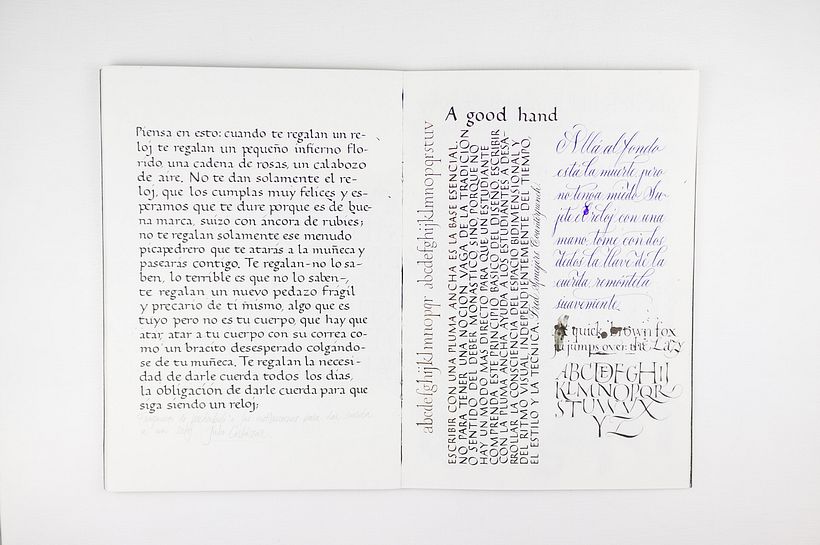 Piensa en esto: cuando te regalan un re-
loj te regalan un pequeño infierno flo-
rido, una cadena de rosas, un calabozo
de aire. No te dan solamente el re-
loj, que los cumplas muy felices y es-
peramos que te dure porque es de bue-
na marca, suizo con áncora de rubies;
no te regalan solamente ese menudo
picapedrero que te atarás a la muñeca y
pasearás contigo. Te regalan-no lo sa-
ben, lo terrible es que no lo saben-,
te regalan un nuevo pedazo frágil
y precario de ti mismo, algo que es
tuyo pero no es tu cuerpo, que hay que
atar atar a tu cuerpo con su correa co-
mo un bracito desesperado colgándo-
se de tu muñeca. Te regalan la necesi-
dad de darle cuerda todos los días,
la obligación de darle cuerda para que
siga siendo un reloj;
a un reloj Julio Cortázar
A good hand
abcdefghijklmnopqr abcdefghijklmnopqrstuv
ESCRIBIR CON UNA PLUMA ANCHA ES LA BASE ESENCIAL,
NO PARA TENER UNA NOCIÓN VAGA DE LA TRADICIÓN
O SENTIDO DEL DEBER MONÁSTICO SINO PORQUE NO
HAY UN MODO MAS DIRECTO PARA QUE UN ESTUDIANTE
COMPRENDA ESTE PRINCIPIO BÁSICO DEL DISEÑO. ESCRIBIR
CON LA PLUMA ANCHA AYUDA A LOS ESTUDIANTES A DESA-
RROLLAR LA CONSCIENCIA DEL ESPACIO BIDIMENSIONAL Y
DEL RITMO VISUAL, INDEPENDIENTEMENTE DEL TIEMPO,
EL ESTILO Y LA TÉCNICA. Fred Smeijers Counterpunch
Allá al fondo
está la muerte, pero
no tenga miedo. Su-
jete el reloj con una
mano, tome con dos
dedos la llave de la
cuerda, remóntela
suavemente.
quick brown fox
jumps over the Lazy
ABCDEFGHIJ
KLMNOPQR
STUVWX
YZ